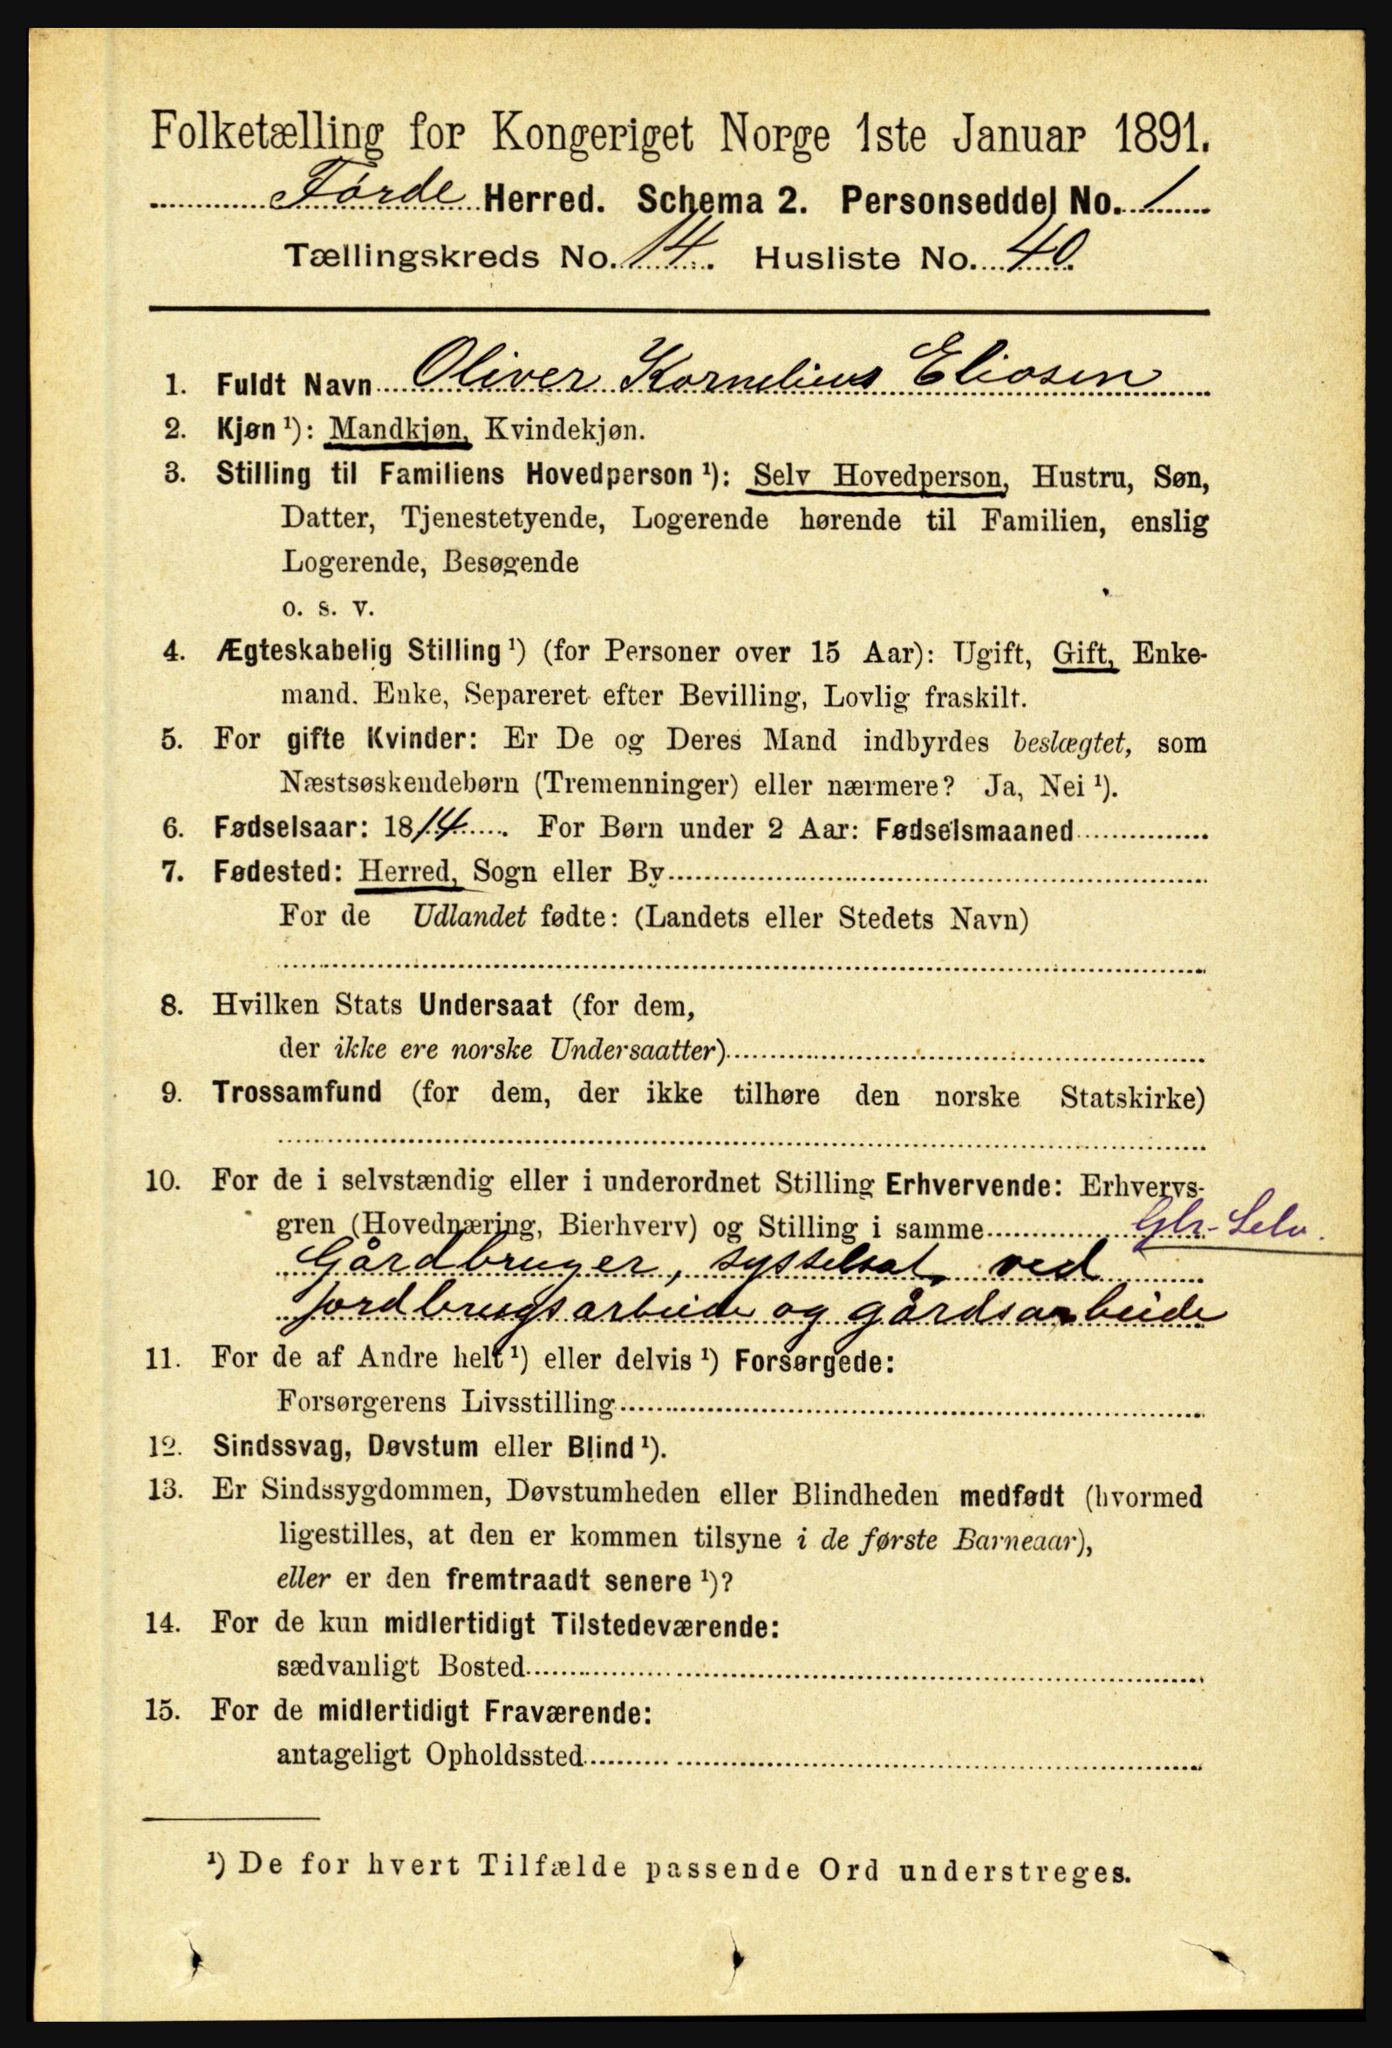 Folketælling for Kongeriget Norge 1ste Januar 1891.
Førde Herred. Schema 2. Personseddel No. 1
Tællingskreds No. 14. Husliste No. 40
1. Fuldt Navn Oliver Kornelius Eliosen
2. Kjøn ¹): Mandkjøn, Kvindekjøn.
3. Stilling til Familiens Hovedperson ¹): Selv Hovedperson, Hustru, Søn,
Datter, Tjenestetyende, Logerende hørende til Familien, enslig
Logerende, Besøgende
o. s. v.
4. Ægteskabelig Stilling ¹) (for Personer over 15 Aar): Ugift, Gift, Enke-
mand. Enke, Separeret efter Bevilling, Lovlig fraskilt.
5. For gifte Kvinder: Er De og Deres Mand indbyrdes beslægtet, som
Næstsøskendebørn (Tremenninger) eller nærmere? Ja, Nei ¹).
6. Fødselsaar: 1814. For Børn under 2 Aar: Fødselsmaaned
7. Fødested: Herred, Sogn eller By
For de Udlandet fødte: (Landets eller Stedets Navn)
8. Hvilken Stats Undersaat (for dem,
der ikke ere norske Undersaatter)
9. Trossamfund (for dem, der ikke tilhøre den norske Statskirke)
10. For de i selvstændig eller i underordnet Stilling Erhvervende: Erhvervs-
gren (Hovednæring, Bierhverv) og Stilling i samme Gbr. Selv.
Gårdbruger, sysselsat ved
jordbrugsarbeide og gårdsarbeide
11. For de af Andre helt ¹) eller delvis ¹) Forsørgede:
Forsørgerens Livsstilling
12. Sindssvag, Døvstum eller Blind ¹).
13. Er Sindssygdommen, Døvstumheden eller Blindheden medfødt (hvormed
ligestilles, at den er kommen tilsyne i de første Barneaar),
eller er den fremtraadt senere ¹)?
14. For de kun midlertidigt Tilstedeværende:
sædvanligt Bosted
15. For de midlertidigt Fraværende:
antageligt Opholdssted
¹) De for hvert Tilfælde passende Ord understreges.